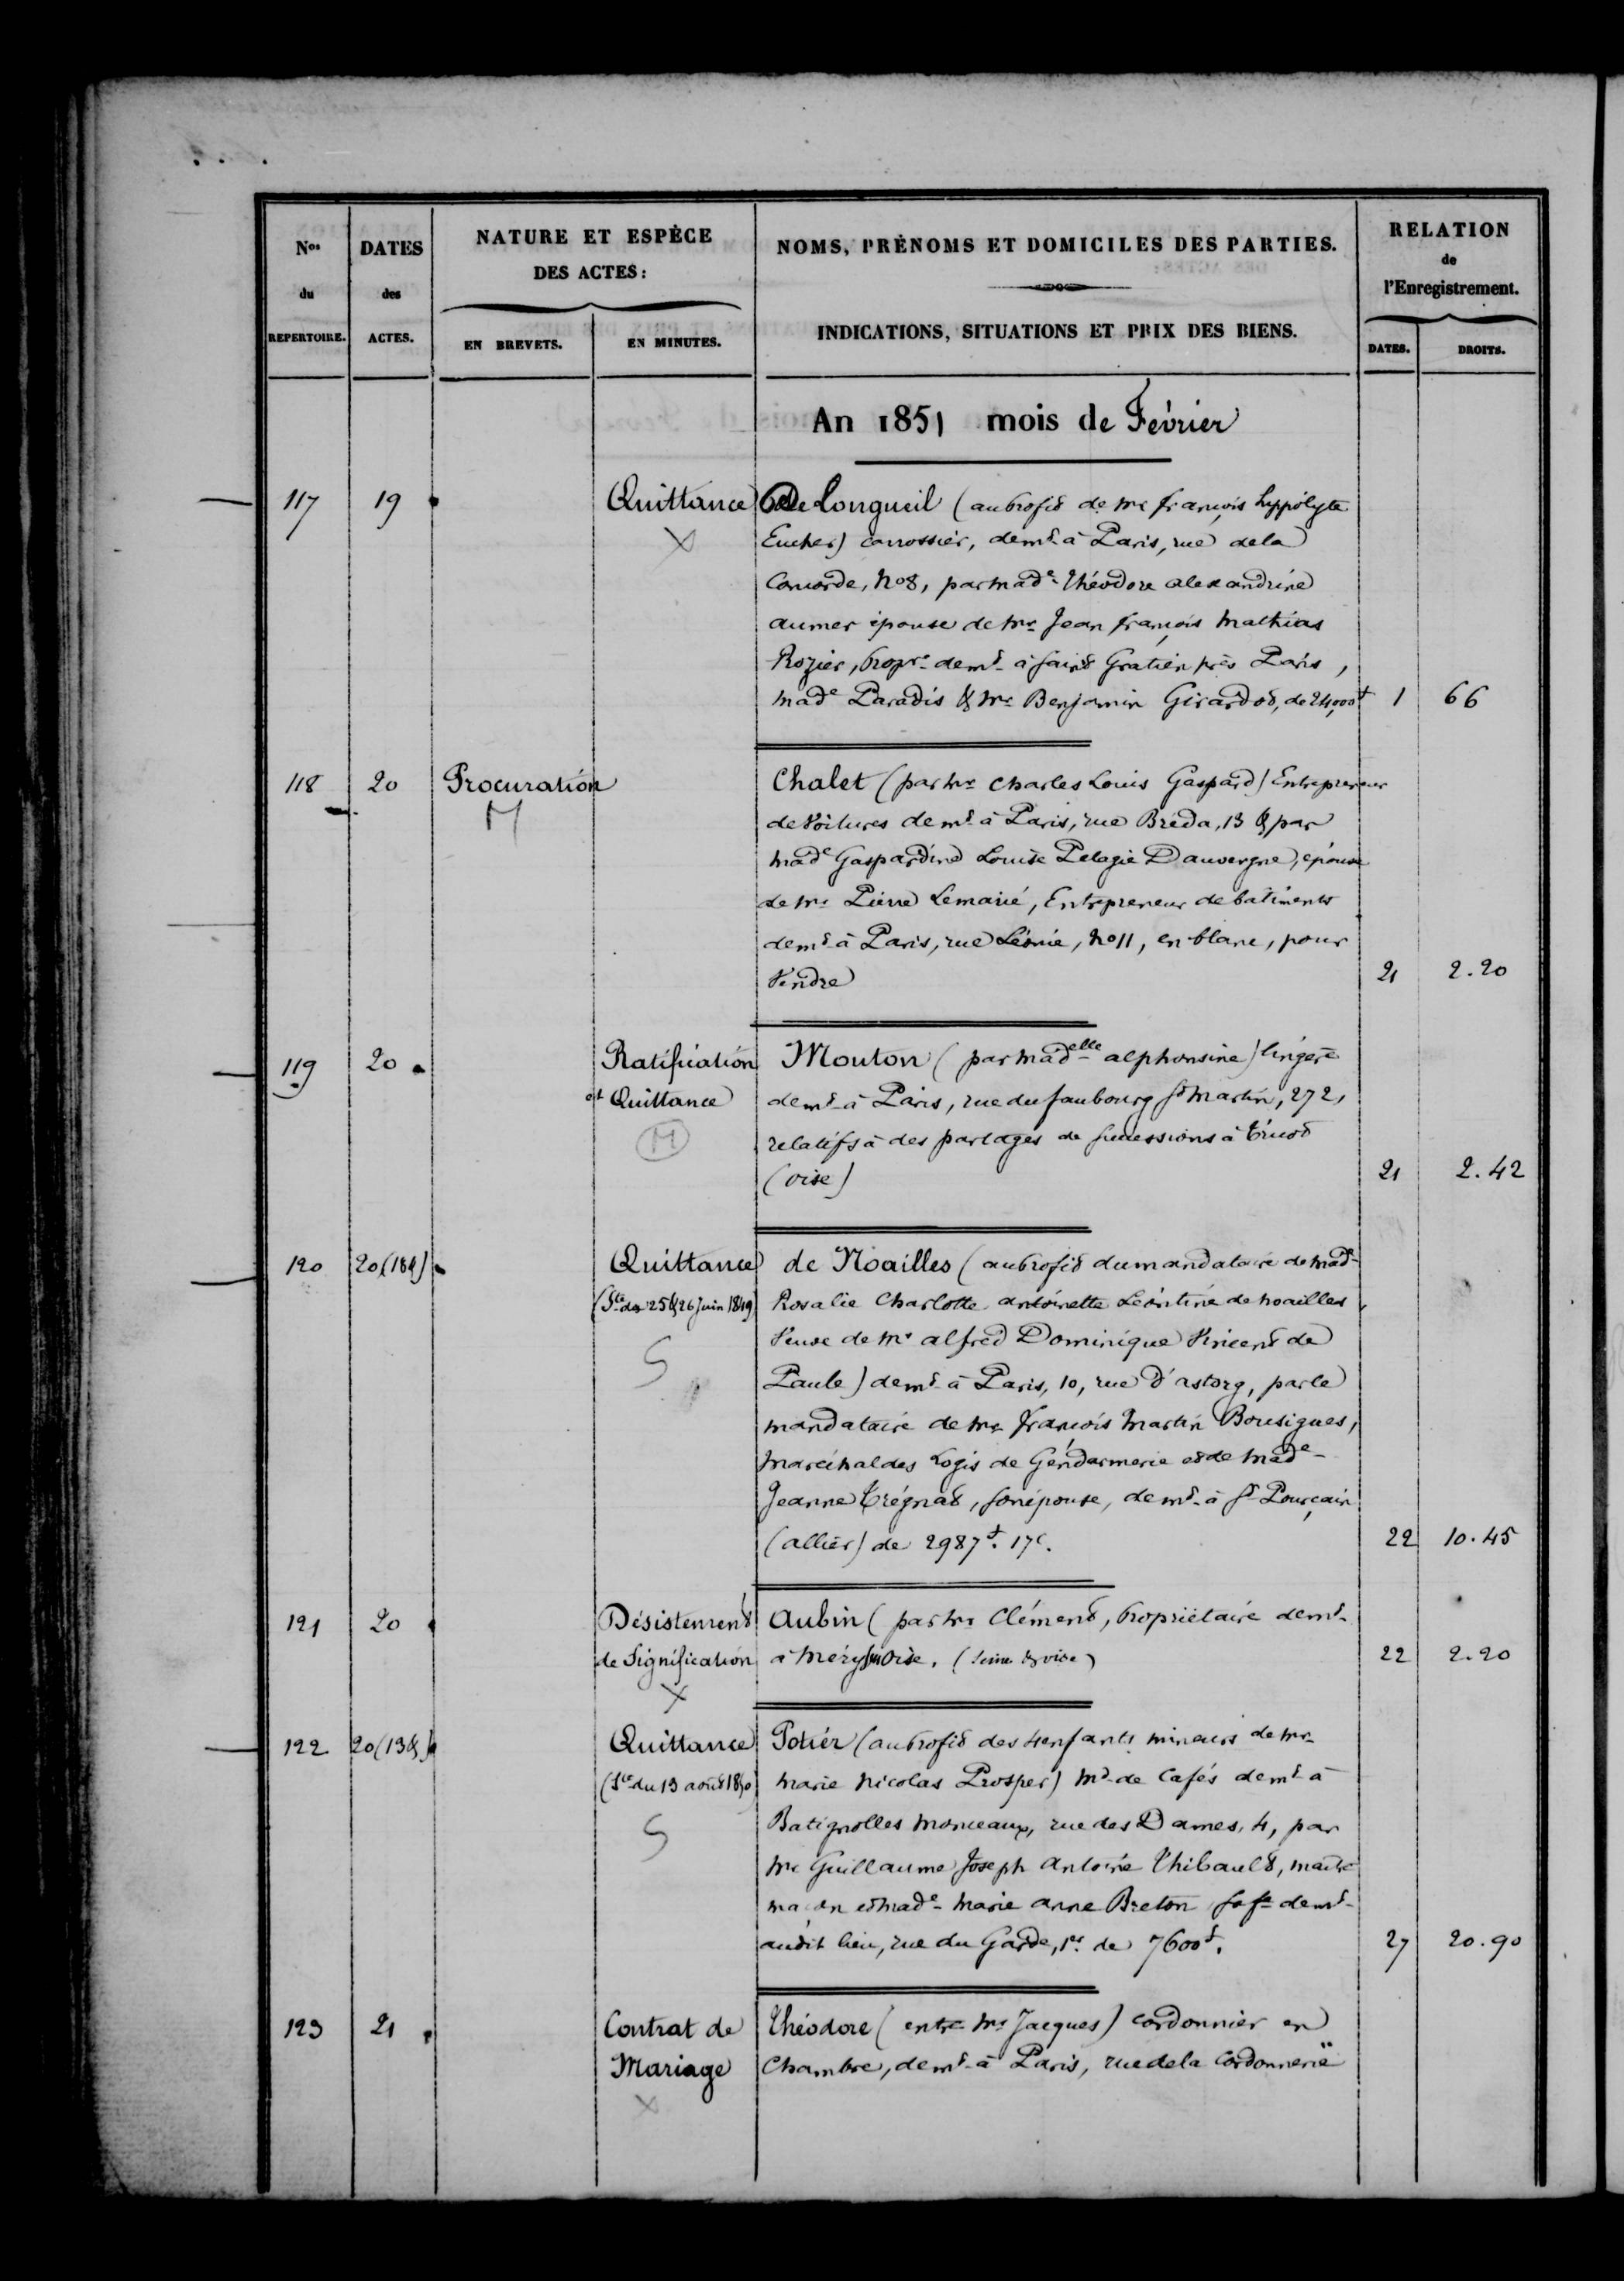 Nos du REPERTOIRE.
DATES des ACTES.
NATURE ET ESPÈCE
DES ACTES:
EN BREVETS.
EN MINUTES.
NOMS, PRÉNOMS ET DOMICILES DES PARTIES.
INDICATIONS, SITUATIONS ET PRIX DES BIENS.
RELATION
de
l'Enregistrement.
DATES.
DROITS.
An 1851 mois de Février
117 19 Quittance De Longueil (au profit de Mr françois hyppolyte
X Eucher) carrossier, demt à Paris, rue de la
Concorde, No 8, par made Théodore alexandrine
aumer épouse de Mr Jean françois Mathias
Rozier, propre demt à Saint Gratien près Paris,
made Paradis & Mr Benjamin Girardot, de 24,000f 1 66
118 20 Procuration Chalet (par Mr Charles Louis Gaspard) Entrepreneur
M de Voitures demt à Paris, rue Bréda, 13 & par
made Gaspardine Louise Pelagie Dauvergne, épouse
de Mr Pierre Lemarié, Entrepreneur de batiments
demt à Paris, rue Léonie, No 11, en blanc, pour
Vendre 21 2.20
119 20 Ratification Mouton (par madelle alphonsine) lingère
et Quittance demt à Paris, rue du faubourg St Martin, 272,
M relatifs à des partages de successions à
(oise) 21 2.42
120 20 (184) Quittance de Noailles (au profit du mandataire de made
(Ste des 25 & 26 Juin 1849) Rosalie Charlotte antoinette Léontine de noailles,
S Veuve de Mr alfred Dominique Vincent de
Paule) demt à Paris, 10, rue d'astorg, par le
mandataire de Mr françois Martin Bousigues,
Maréchal des Logis de Gendarmerie et de made
Jeanne Trégnat, son épouse, demt à St Pourçain
(allier) de 2987f. 17c. 22 10.45
121 20 Désistement Aubin (par Mr Clément, propriétaire demt
de Signification à Méry sur Oise. (Seine & oise) 22 2.20
X
122 20 (138) Quittance Potier (au profit des 4 enfants mineurs de Mr
(Ste du 13 août 1840) Marie Nicolas Prosper) Md de Cafés demt à
S Batignolles Monceaux, rue des Dames, 4, par
Mr Guillaume Joseph Antoine Thibault, maître
maçon et made Marie anne Breton sa fe demt
audit lieu, rue du Garde, 1er. de 7600f. 27 20.90
123 21 Contrat de Théodore (entre Mr Jacques) cordonnier en
Mariage Chambre, demt à Paris, rue de la Cordonnerie
X